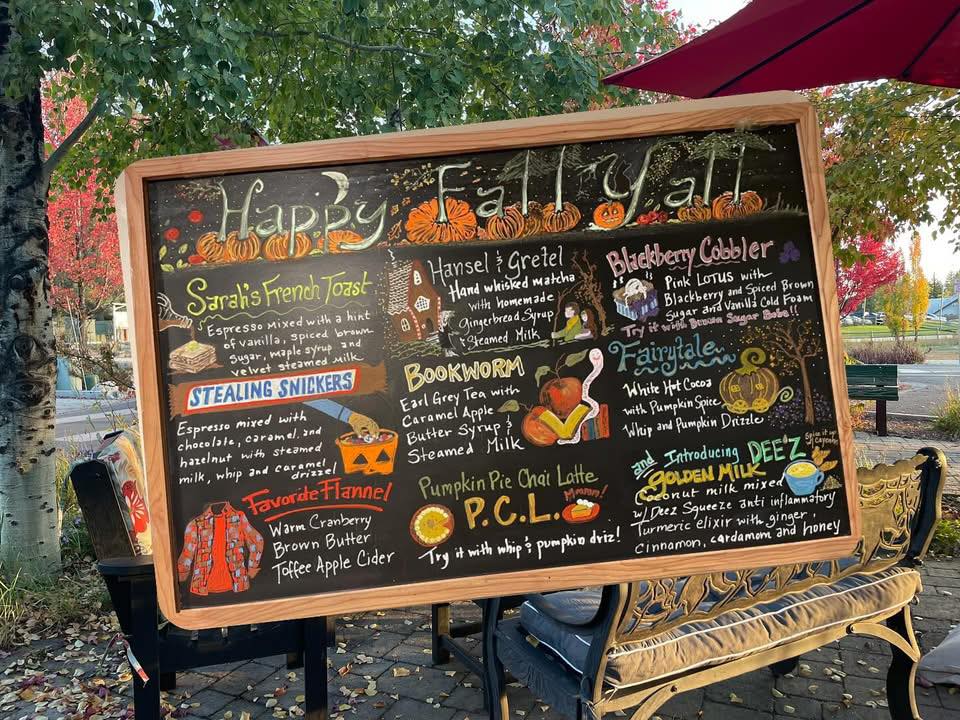 Happy Fall Y'all
Sarah's French Toast
Espresso mixed with a hint
of vanilla, spiced brown
sugar, maple syrup and
velvet steamed milk
STEALING SNICKERS
Espresso mixed with
chocolate, caramel, and
hazelnut with steamed
milk, whip and caramel
drizzel
Favorite Flannel
Warm Cranberry
Brown Butter
Toffee Apple Cider
Hansel & Gretel
Hand whisked matcha
with homemade
Gingerbread Syrup
& Steamed Milk
BOOKWORM
Earl Grey Tea with
Caramel Apple
Butter Syrup &
Steamed Milk
Pumpkin Pie Chai Latte
P.C.L.
Mmmm!
Try it with whip & pumpkin driz!
Blackberry Cobbler
Pink Lotus with
Blackberry and Spiced Brown
Sugar and Vanilla Cold Foam
Try it with Brown Sugar Boba!!
Fairytale
White Hot Cocoa
with Pumpkin Spice
Whip and Pumpkin Drizzle
and Introducing DEE'Z
GOLDEN MILK
Spice it up
Cayenne
Coconut milk mixed
w/ Deez Squeeze anti inflammatory
Turmeric elixir with ginger,
Cinnamon, cardamom and honey